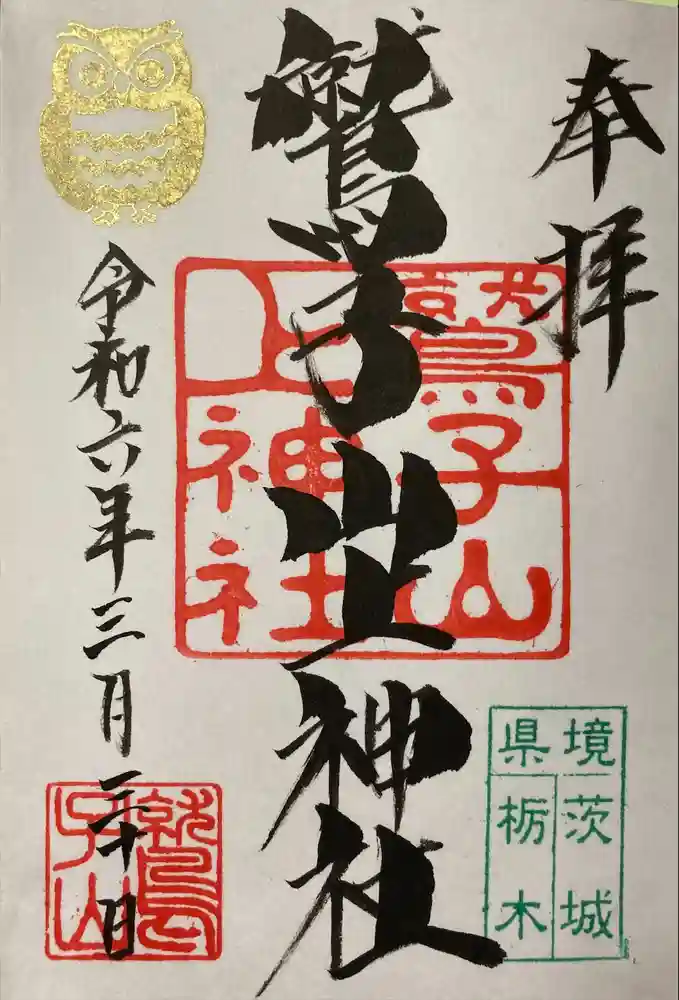 奉拝
鷲子山上神社
鷲子山
上神社
令和六年三月三十日
鷲
子山
県境
茨城
栃木